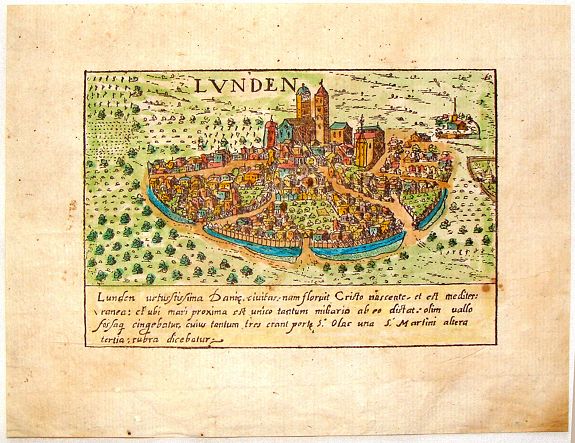 LVNDEN
Lunden vetustissima Danię civitas, nam floruit Cristo nascente, et est mediter:
ranea: et ubi mari proxima est unico tantum miliario ab eo distat. olim vallo
fossaq cingebatur, cuius tantum tres erant portę S. Olac una S. Martini altera
tertia, rubra dicebatur.